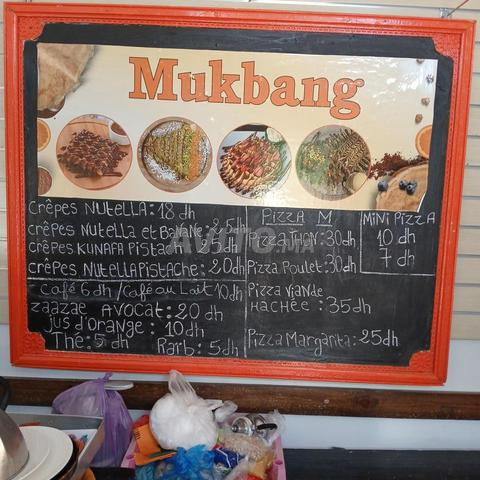 Mukbang
Crêpes Nutella: 18 dh
crêpes Nutella et Banane 25h
crêpes Kunafa Pistach: 25dh
crêpes Nutella Pistache: 20dh
café 6 dh / café au Lait 10dh
zaazae Avocat: 20 dh
jus d'orange: 10dh
Thé: 5 dh Rarb: 5dh
Pizza M
Pizza Thon: 30dh
Pizza Poulet: 30dh
Pizza Viande
Hachée: 35dh
Pizza Margarita: 25dh
Mini Pizza
10 dh
7 dh